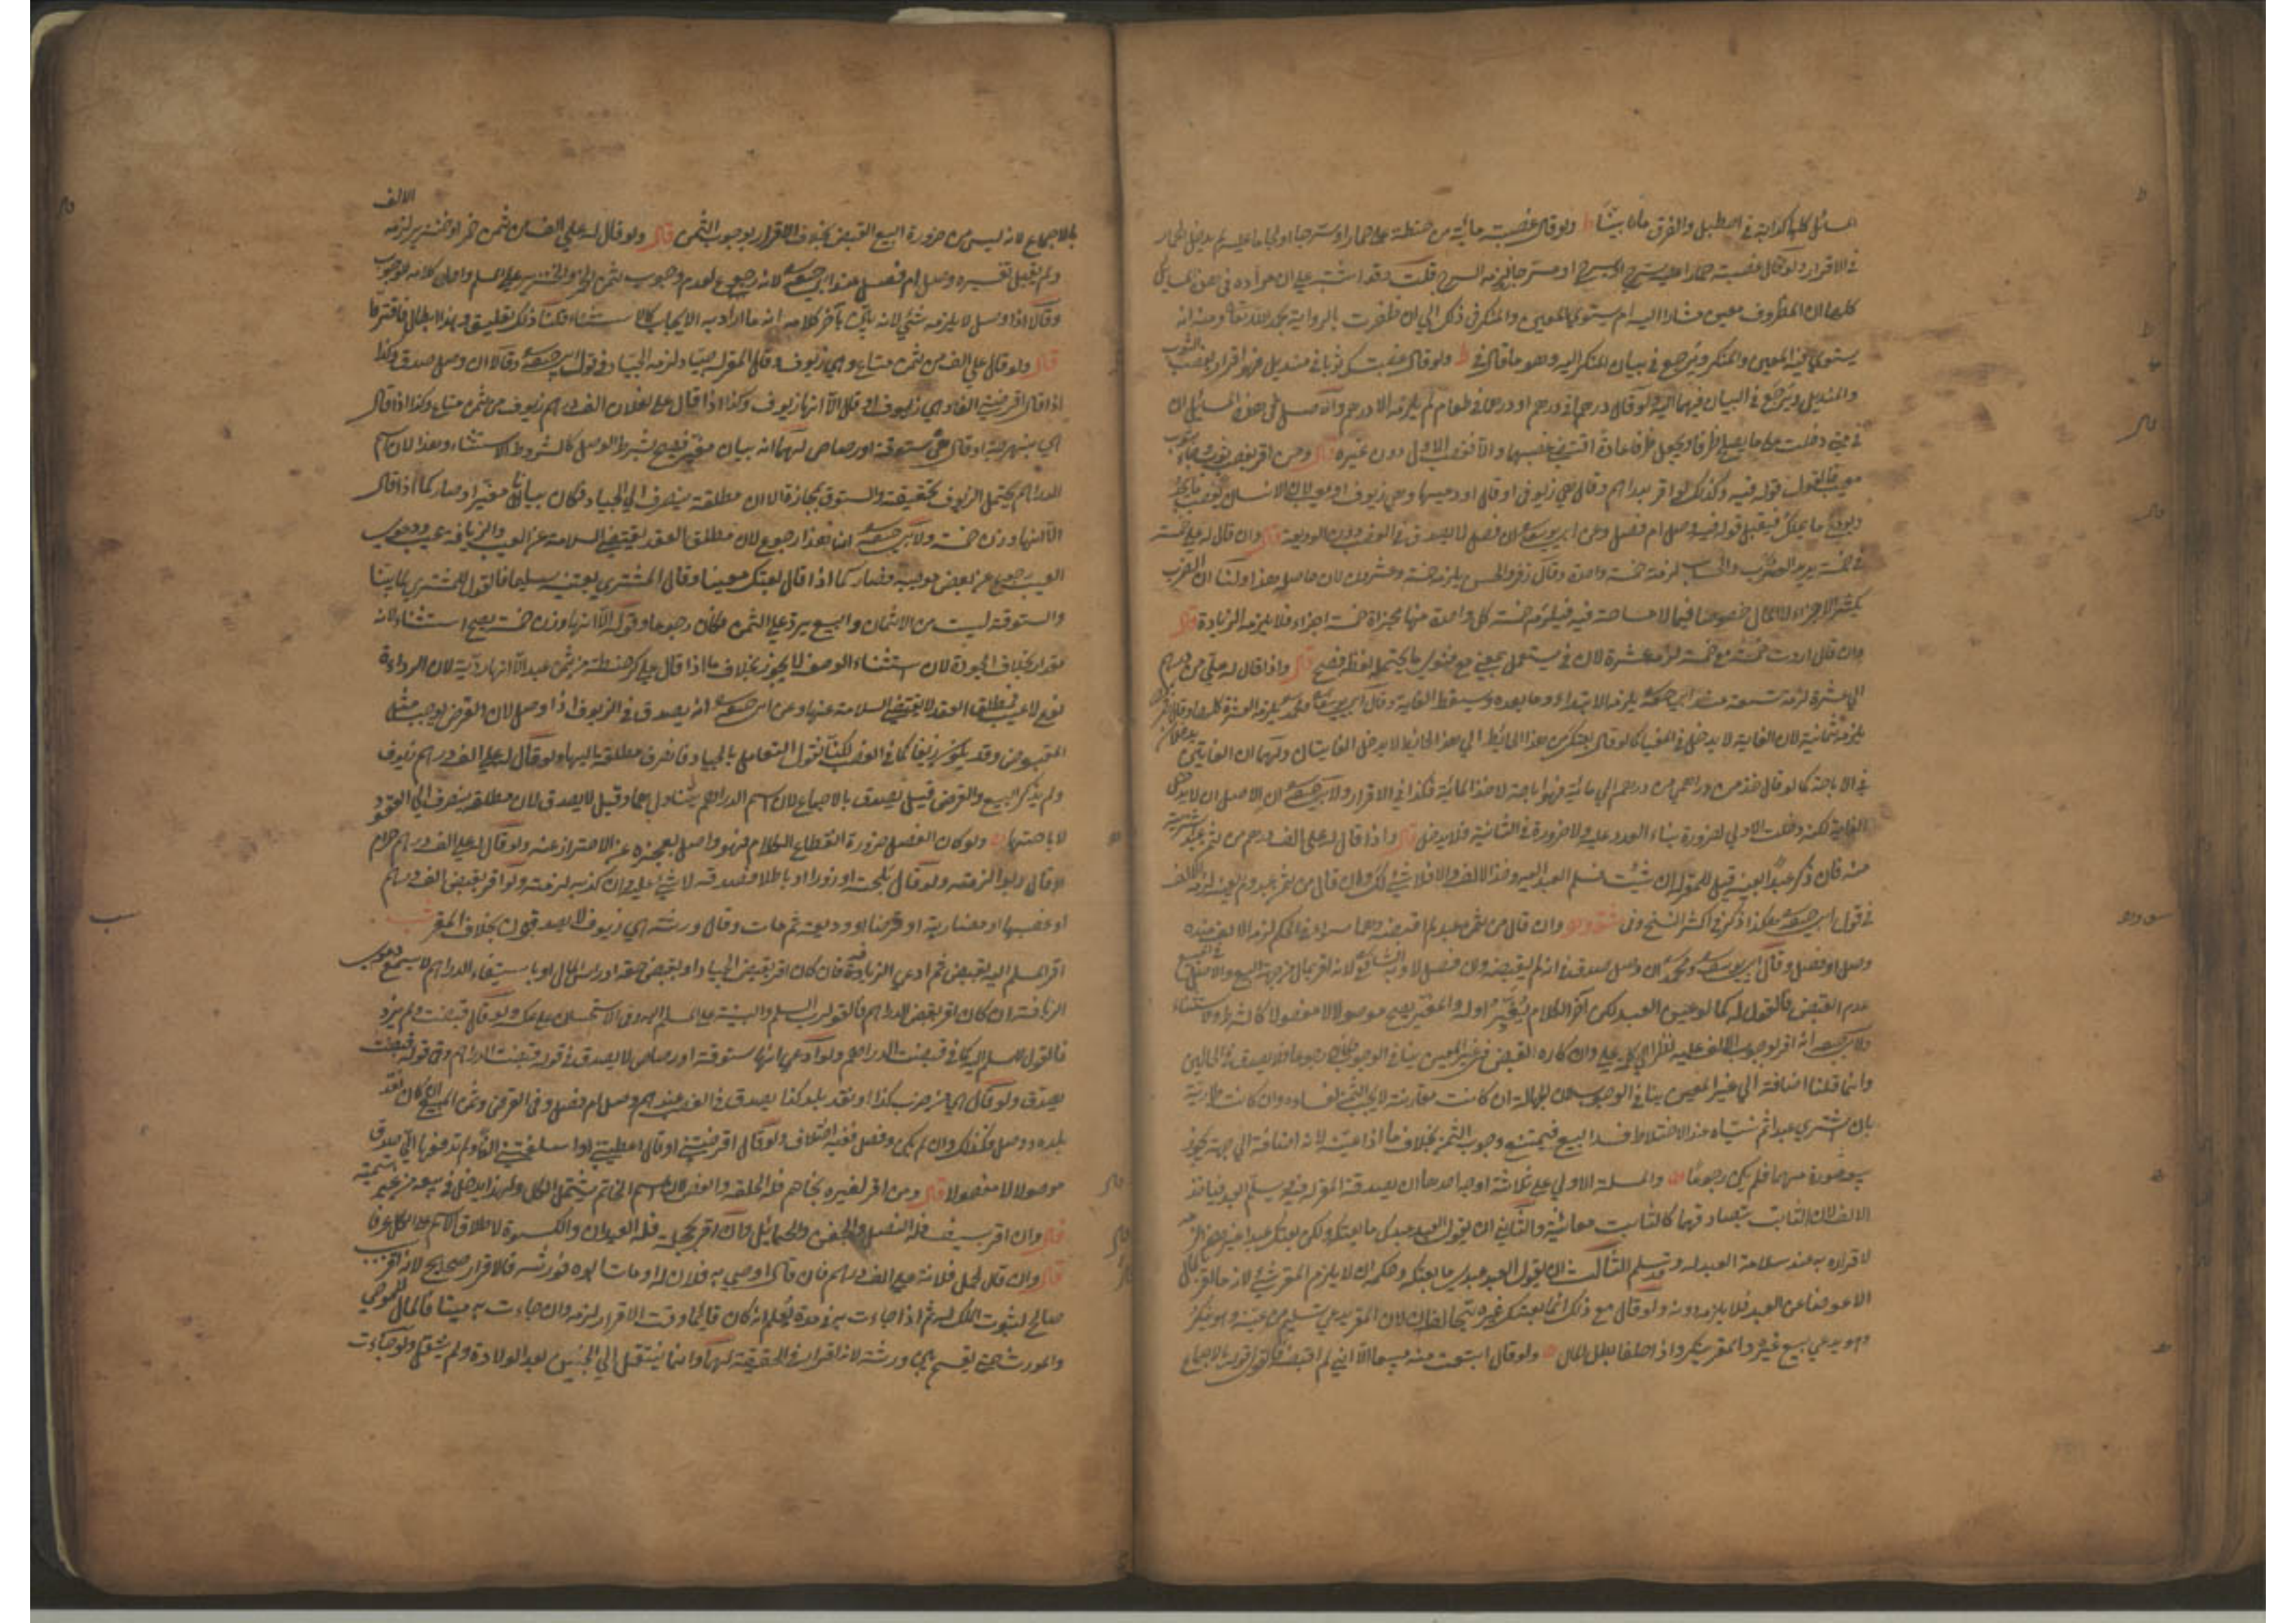 المسائل كلها كدابة في اصطبل والفرق ما بينا ولو قال غصبته مائة من حنطة على حمار او سرجا او لجاما عليه لم يدخل الحمار
في الاقرار ولو قال غصبته حمارا عليه سرج او مسرجا لزمه السرج قلت وقد اشتبه علي ان مراده في هذه المسائل
كلها ان المظروف معين مشار اليه ام يستوي المعين والمنكر في ذلك الى ان ظفرت بالرواية بحمد الله تعالى ومنه انه
يستوي فيه المعين والمنكر ويرجع في بيان المنكر اليه وهو ما قال في ط ولو قال غصبتك ثوبا في منديل فهو اقرار بغصب الثوب
والمنديل ويرجع في البيان فيهما اليه ولو قال درهم في درهم او درهما في طعام لم يلزمه الا درهم والاصل في هذه المسائل ان
في متى دخلت على ما يصلح ظرفا ويجعل ظرفا عادة اقتضى غصبهما والا فغصب الاول دون غيره قال ومن اقر بغصب ثوب جاء بثوب
معيب فالقول قوله فيه وكذلك لو اقر بدراهم وقال هي زيوف او قال اودعنيها وهي زيوف او معيب لان الانسان يغصب ما يجد
ويودع ما يملك فيقبل قوله فيه وصل ام فصل وعن ابي يوسف ان فصل لا يصدق في الغصب دون الوديعة قال وان قال له علي خمسة
في خمسة يريد الضرب والحساب لزمه خمسة واحدة وقال زفر والحسن يلزمه خمسة وعشرون لان حاصل هذا ولنا ان الضرب
يكثر الاجزاء لا المال خصوصا فيما لا مساحة فيه فيلزم خمسة كل واحدة منها مجزاة خمسة اجزاء فلا يلزمه الزيادة قال
وان قال اردت خمسة مع خمسة لزمه عشرة لان في يستعمل بمعنى مع فنوى ما يحتمله لفظه فصح قال واذا قال له علي من درهم
الى عشرة لزمه تسعة عند ابي حنيفة يلزمه الابتداء وما بعده ويسقط الغاية وقال ابو يوسف ومحمد يلزمه العشرة كلها وقال زفر
يلزمه ثمانية لان الغاية لا يدخل في المغيا كما لو قال بعتك من هذا الحائط الى هذا الحائط لا يدخل الغايتان ولهما ان الغايتين يدخلان
في الاباحة كما لو قال خذ من دراهمي من درهم الى مائة فهو اباحة لاخذ المائة فكذا في الاقرار ولابي حنيفة ان الاصل ان لا يدخل
الغاية لكنه دخلت الاولى لضرورة بناء العدد عليه ولا ضرورة في الثانية فلا يدخل قال واذا قال له علي الف درهم من ثمن عبد اشتريته
منه فان ذكر عبدا بعينه قيل للمقر له ان شئت فسلم العبد اليه وخذ الالف والا فلا شيء لك وان قال من ثمن عبد ولم يعينه لزمه الالف
في قول ابي حنيفة هكذا ذكر في اكثر النسخ وفي وان قال من ثمن عبد لم اقبضه وهما سواء في الحكم لزمه الالف عنده
وصل او فصل وقال ابو يوسف ومحمد ان وصل صدق في انه لم يقبضه وان فصل لا لانه اقر بمال من جهة البيع والاصل في البيع
عدم القبض فالقول له كما لو عين العبد لكن آخر الكلام يغير اوله والمغير يصح موصولا لا مفصولا كالشرط والاستثناء
ولابي حنيفة انه اقر بوجوب الالف عليه نظرا الى كلمة علي وانكاره القبض في غير المعين ينافي الوجوب فكان رجوعا فلا يصدق في الحالين
وانما قلنا اضافة الى غير المعين ينافي الوجوب لان الجهالة ان كانت مقارنة لا يجب الثمن لفساده وان كانت طارئة
بان اشترى عبدا ثم نسياه عند الاختلاط فسد البيع فيمتنع وجوب الثمن بخلاف ما اذا عينه لانه اضافة الى جهة يجوز
بوصورة منهما فلم يكن رجوعا والمسئلة الاولى على ثلاثة اوجه احدها ان يصدقه المقر له فيه ويسلم العبد فياخذ
الالف لان الثابت بتصادقهما كالثابت معاينة والثاني ان يقول العبد عبدك ما بعتكه ولكن بعتك عبدا غير هذا لزمه
لاقراره به عند سلامة العبد له وقد سلم الثالث ان يقول العبد عبدي ما بعتكه وحكمه ان لا يلزم المقر شيء لانه ما اقر بالمال
الا عوضا عن العبد فلا يلزمه دونه ولو قال مع ذلك انما بعتك غيره يتحالفان لان المقر يدعي تسليم من عينه وهو ينكر
وهو يدعي بيع غيره والمقر ينكر واذا تحالفا بطل المال ولو قال ابتعت منه مبيعا الا اني لم اقبضه فالقول قوله بالاجماع
الالف
بالاجماع لانه ليس من ضرورة البيع القبض بخلاف الاقرار بوجوب الثمن قال ولو قال له علي الف من ثمن خمر او خنزير لزمه
ولم يقبل تفسيره وصل ام فصل عند ابي حنيفة لانه رجوع لعدم وجوب ثمن الخمر والخنزير على المسلم واول كلامه للوجوب
وقالا اذا وصل لا يلزمه شيء لانه بين بآخر كلامه انه ما اراد به الايجاب كالاستثناء قلنا ذلك تعليق وهذا ابطال فافترقا
قال ولو قال علي الف من ثمن متاع وهي زيوف وقال المقر له جياد لزمه الجياد في قول ابي حنيفة وقالا ان وصل صدق وكذا
اذا قال اقرضني الفا وهي زيوف او قال الا انها زيوف وكذا اذا قال علي لفلان الف درهم زيوف من ثمن متاع وكذا اذا قال
هي بنهرجة او قال هي ستوقة او رصاص لهما انه بيان مغير فيصح بشرط الوصل كالشرط والاستثناء وهذا لان اسم
الدراهم يحتمل الزيوف بحقيقته والستوق بمجازه الا ان مطلقه ينصرف الى الجياد فكان بيانا مغيرا وصار كما اذا قال
الا انها وزن خمسة ولابي حنيفة ان هذا رجوع لان مطلق العقد يقتضي السلامة عن العيب والزيافة عيب ودعوى
العيب رجوع عن بعض موجبه فصار كما اذا قال بعتك معيبا وقال المشتري بعتنيه سليما فالقول للمشتري لما بينا
والستوقة ليست من الاثمان والبيع يرد على الثمن فكان رجوعا وقوله الا انها وزن خمسة يصح استثناء لانه
مقدار بخلاف الجودة لان استثناء الوصف لا يجوز بخلاف ما اذا قال علي كر حنطة من ثمن عبد الا انها ردية لان الرداءة
نوع لا عيب فمطلق العقد لا يقتضي السلامة عنها وعن ابي حنيفة انه يصدق في الزيوف اذا وصل لان القرض يوجب مثل
المقبوض وقد يكون زيفا كما في الغصب لكنا نقول التعامل بالجياد فانصرف مطلقه اليها ولو قال له علي الف درهم زيوف
ولم يذكر البيع والقرض قيل يصدق بالاجماع لان اسم الدراهم يتناولها وقيل لا يصدق لان مطلقه ينصرف الى العقود
لاباحتها ولو كان الفصل ضرورة انقطاع الكلام فهو واصل لعجزه عن الاحتراز عنه ولو قال له علي الف درهم حرام
او قال ربوا لزمته ولو قال تلجئة او زورا او باطلا فصدقه لا شيء عليه وان كذبه لزمته ولو اقر بقبض الف درهم
او غصبها او مضاربة او قرضا او وديعة ثم مات وقال ورثته هي زيوف لا يصدقون بخلاف المقر
اقر المسلم اليه بقبض ثم ادعى الزيافة فان كان اقر بقبض الجياد او بقبض حقه او رأس المال او باستيفاء الدراهم لا يسمع دعوى
الزيافة ان كان اقر بقبض الدراهم فالقول لرب السلم والبينة على المسلم اليه وفي الاستحسان على عكسه ولو قال قبضت ولم يزد
فالقول للمسلم اليه كما في قبضت الدراهم ولو ادعى انها ستوقة او رصاص لا يصدق في قوله قبضت الدراهم وفي قوله قبضت
يصدق ولو قال هي من ضرب كذا او نقد بلد كذا يصدق في الغصب عندهم وصل ام فصل وفي القرض وثمن المبيع ان كان نقد
بلده ووصل فكذلك وان لم يكن وفصل ففيه اختلاف ولو قال اقرضتني او قال اعطيتني او اسلفتني الفا ولم تدفعها الي صدق
موصولا لا مفصولا قال ومن اقر لغيره بخاتم فله الحلقة والفص لان اسم الخاتم يشتمل الكل ولهذا يدخل في بيعه من غير تسمية
قال وان اقر بسيف فله النصل والجفن والحمائل وان اقر بحجلة فله العيدان والكسوة لاطلاق الاسم على الكل عرفا
قال وان قال لحمل فلانة علي الف درهم فان قال اوصى به فلان له او مات ابوه فورثه فالاقرار صحيح لانه اقر بسبب
صالح لثبوت الملك له ثم اذا جاءت به في مدة يعلم انه كان قائما وقت الاقرار لزمه وان جاءت به ميتا فالمال للموصي
والمورث حتى يقسم بين ورثته لانه اقرار في الحقيقة لهما وانما ينتقل الى الجنين بعد الولادة ولم ينتقل ولو جاءت